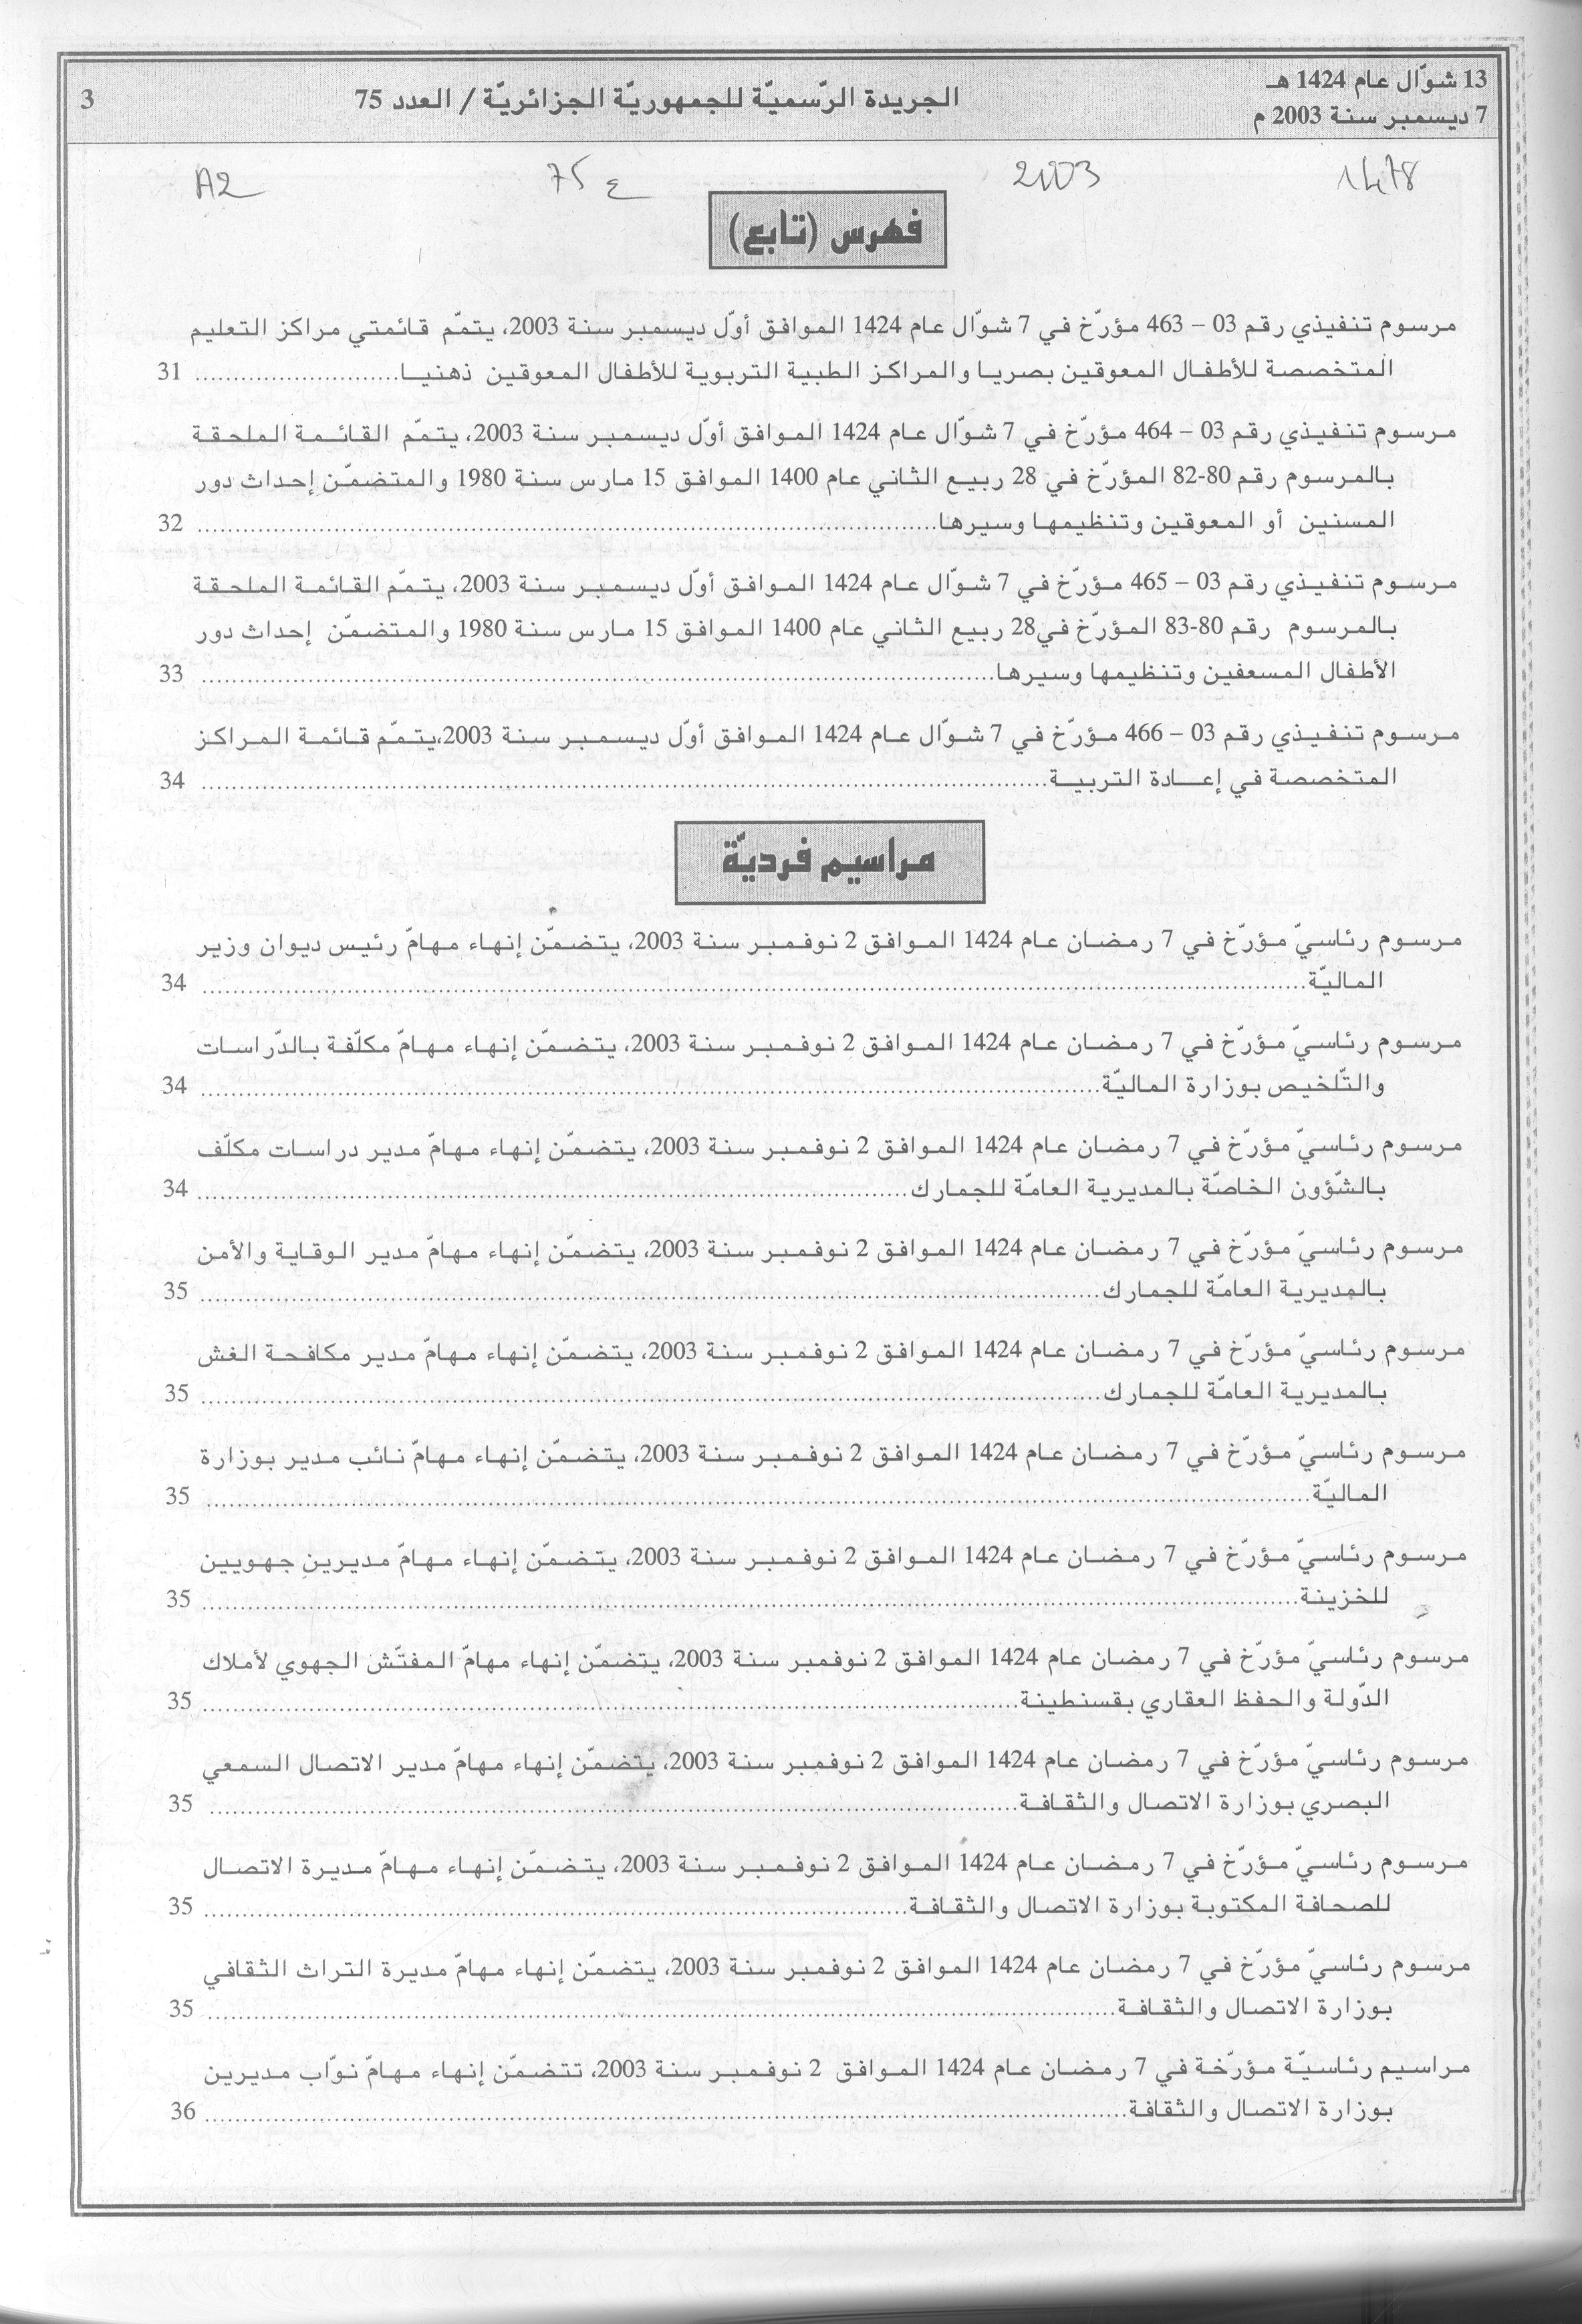 13 شوّال عام 1424 هـ
7 ديسمبر سنة 2003 م
الجريدة الرّسميّة للجمهوريّة الجزائريّة / العدد 75
3
1478
2003
75 ع
A2
فهرس (تابع)
مرسوم تنفيذي رقم 03 – 463 مؤرّخ في 7 شوّال عام 1424 الموافق أوّل ديسمبر سنة 2003، يتمّم قائمتي مراكز التعليم
المتخصصة للأطفال المعوقين بصريا والمراكز الطبية التربوية للأطفال المعوقين ذهنيا........................... 31
مرسوم تنفيذي رقم 03 – 464 مؤرّخ في 7 شوّال عام 1424 الموافق أوّل ديسمبر سنة 2003، يتمّم القائمة الملحقة
بالمرسوم رقم 80-82 المؤرّخ في 28 ربيع الثاني عام 1400 الموافق 15 مارس سنة 1980 والمتضمّن إحداث دور
المسنين أو المعوقين وتنظيمها وسيرها........................... 32
مرسوم تنفيذي رقم 03 – 465 مؤرّخ في 7 شوّال عام 1424 الموافق أوّل ديسمبر سنة 2003، يتمّم القائمة الملحقة
بالمرسوم رقم 80-83 المؤرّخ في28 ربيع الثاني عام 1400 الموافق 15 مارس سنة 1980 والمتضمّن إحداث دور
الأطفال المسعفين وتنظيمها وسيرها........................... 33
مرسوم تنفيذي رقم 03 – 466 مؤرّخ في 7 شوّال عام 1424 الموافق أوّل ديسمبر سنة 2003،يتمّم قائمة المراكز
المتخصصة في إعادة التربية........................... 34
مراسيم فرديّة
مرسوم رئاسيّ مؤرّخ في 7 رمضان عام 1424 الموافق 2 نوفمبر سنة 2003، يتضمّن إنهاء مهامّ رئيس ديوان وزير
الماليّة........................... 34
مرسوم رئاسيّ مؤرّخ في 7 رمضان عام 1424 الموافق 2 نوفمبر سنة 2003، يتضمّن إنهاء مهامّ مكلّفة بالدّراسات
والتّلخيص بوزارة الماليّة........................... 34
مرسوم رئاسيّ مؤرّخ في 7 رمضان عام 1424 الموافق 2 نوفمبر سنة 2003، يتضمّن إنهاء مهامّ مدير دراسات مكلّف
بالشّؤون الخاصّة بالمديرية العامّة للجمارك........................... 34
مرسوم رئاسيّ مؤرّخ في 7 رمضان عام 1424 الموافق 2 نوفمبر سنة 2003، يتضمّن إنهاء مهامّ مدير الوقاية والأمن
بالمديرية العامّة للجمارك........................... 35
مرسوم رئاسيّ مؤرّخ في 7 رمضان عام 1424 الموافق 2 نوفمبر سنة 2003، يتضمّن إنهاء مهامّ مدير مكافحة الغش
بالمديرية العامّة للجمارك........................... 35
مرسوم رئاسيّ مؤرّخ في 7 رمضان عام 1424 الموافق 2 نوفمبر سنة 2003، يتضمّن إنهاء مهامّ نائب مدير بوزارة
الماليّة........................... 35
مرسوم رئاسيّ مؤرّخ في 7 رمضان عام 1424 الموافق 2 نوفمبر سنة 2003، يتضمّن إنهاء مهامّ مديرين جهويين
للخزينة........................... 35
مرسوم رئاسيّ مؤرّخ في 7 رمضان عام 1424 الموافق 2 نوفمبر سنة 2003، يتضمّن إنهاء مهامّ المفتّش الجهوي لأملاك
الدّولة والحفظ العقاري بقسنطينة........................... 35
مرسوم رئاسيّ مؤرّخ في 7 رمضان عام 1424 الموافق 2 نوفمبر سنة 2003، يتضمّن إنهاء مهامّ مدير الاتصال السمعي
البصري بوزارة الاتصال والثقافة........................... 35
مرسوم رئاسيّ مؤرّخ في 7 رمضان عام 1424 الموافق 2 نوفمبر سنة 2003، يتضمّن إنهاء مهامّ مديرة الاتصال
للصحافة المكتوبة بوزارة الاتصال والثقافة........................... 35
مرسوم رئاسيّ مؤرّخ في 7 رمضان عام 1424 الموافق 2 نوفمبر سنة 2003، يتضمّن إنهاء مهامّ مديرة التراث الثقافي
بوزارة الاتصال والثقافة........................... 35
مراسيم رئاسيّة مؤرّخة في 7 رمضان عام 1424 الموافق 2 نوفمبر سنة 2003، تتضمّن إنهاء مهامّ نوّاب مديرين
بوزارة الاتصال والثقافة........................... 36